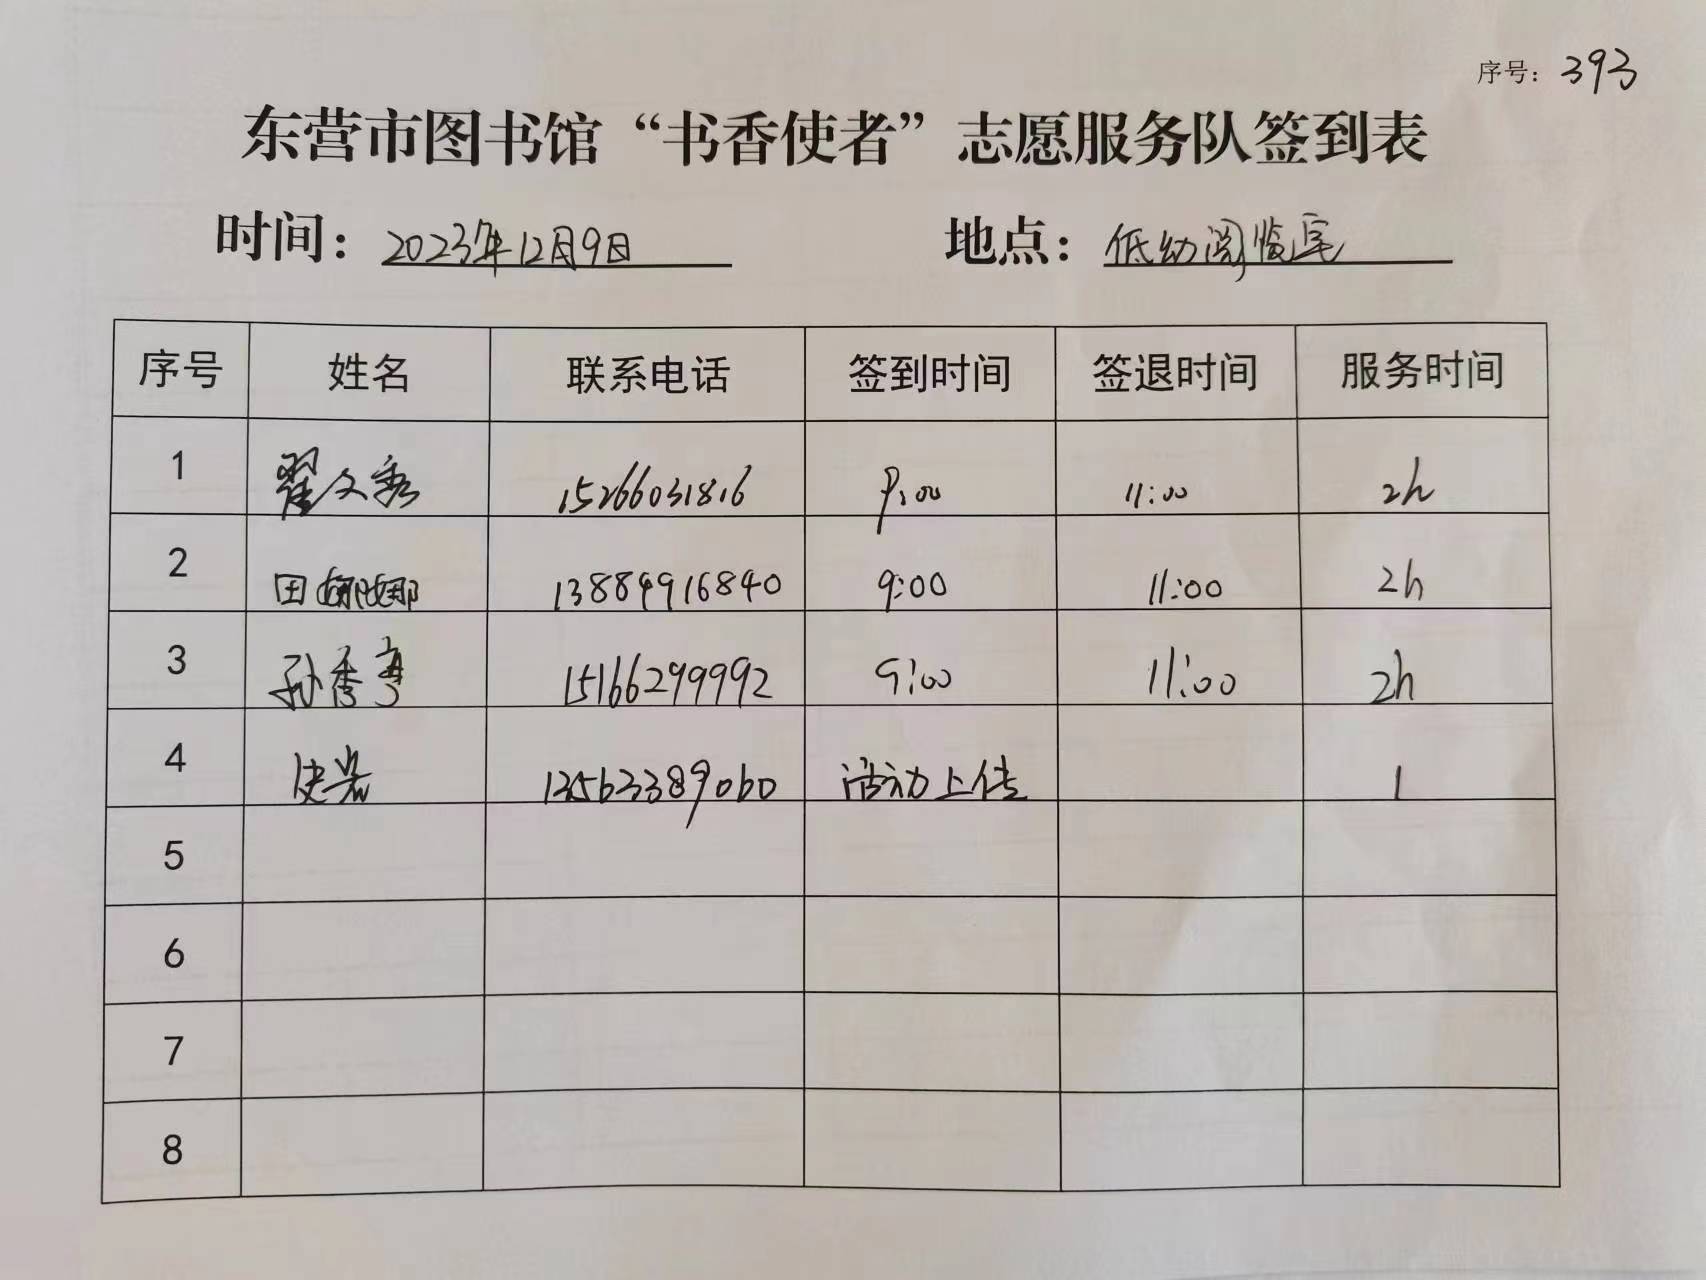 序号：393
东营市图书馆“书香使者”志愿服务队签到表
时间：2023年12月9日 地点：低幼阅览室
序号 姓名 联系电话 签到时间 签退时间 服务时间
1 翟文秀 15266031816 9:00 11:00 2h
2 田娜娜 13884916840 9:00 11:00 2h
3 孙秀亭 15166299992 9:00 11:00 2h
4 史岩 13563389060 活动上传 1
5
6
7
8